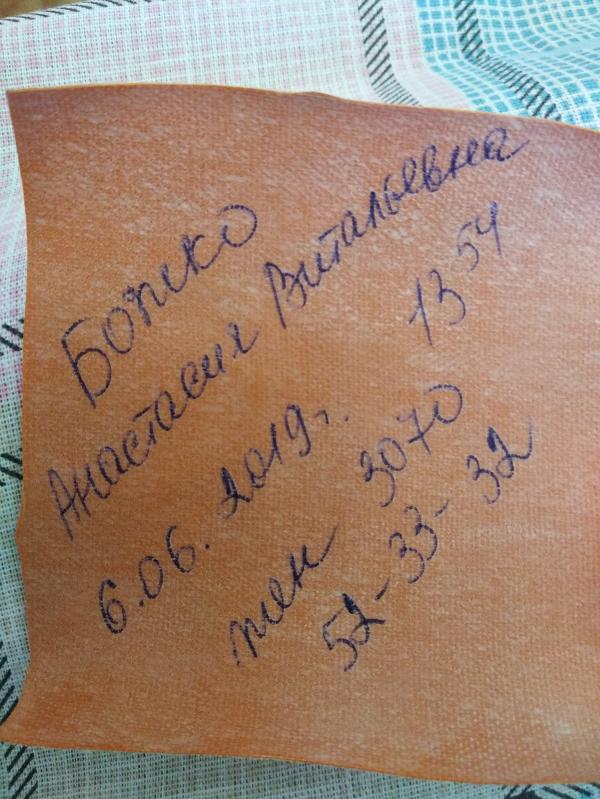 Божко
Анастасия Витальевна
6.06.2019г. 13 54
жен 3070
52-33-32